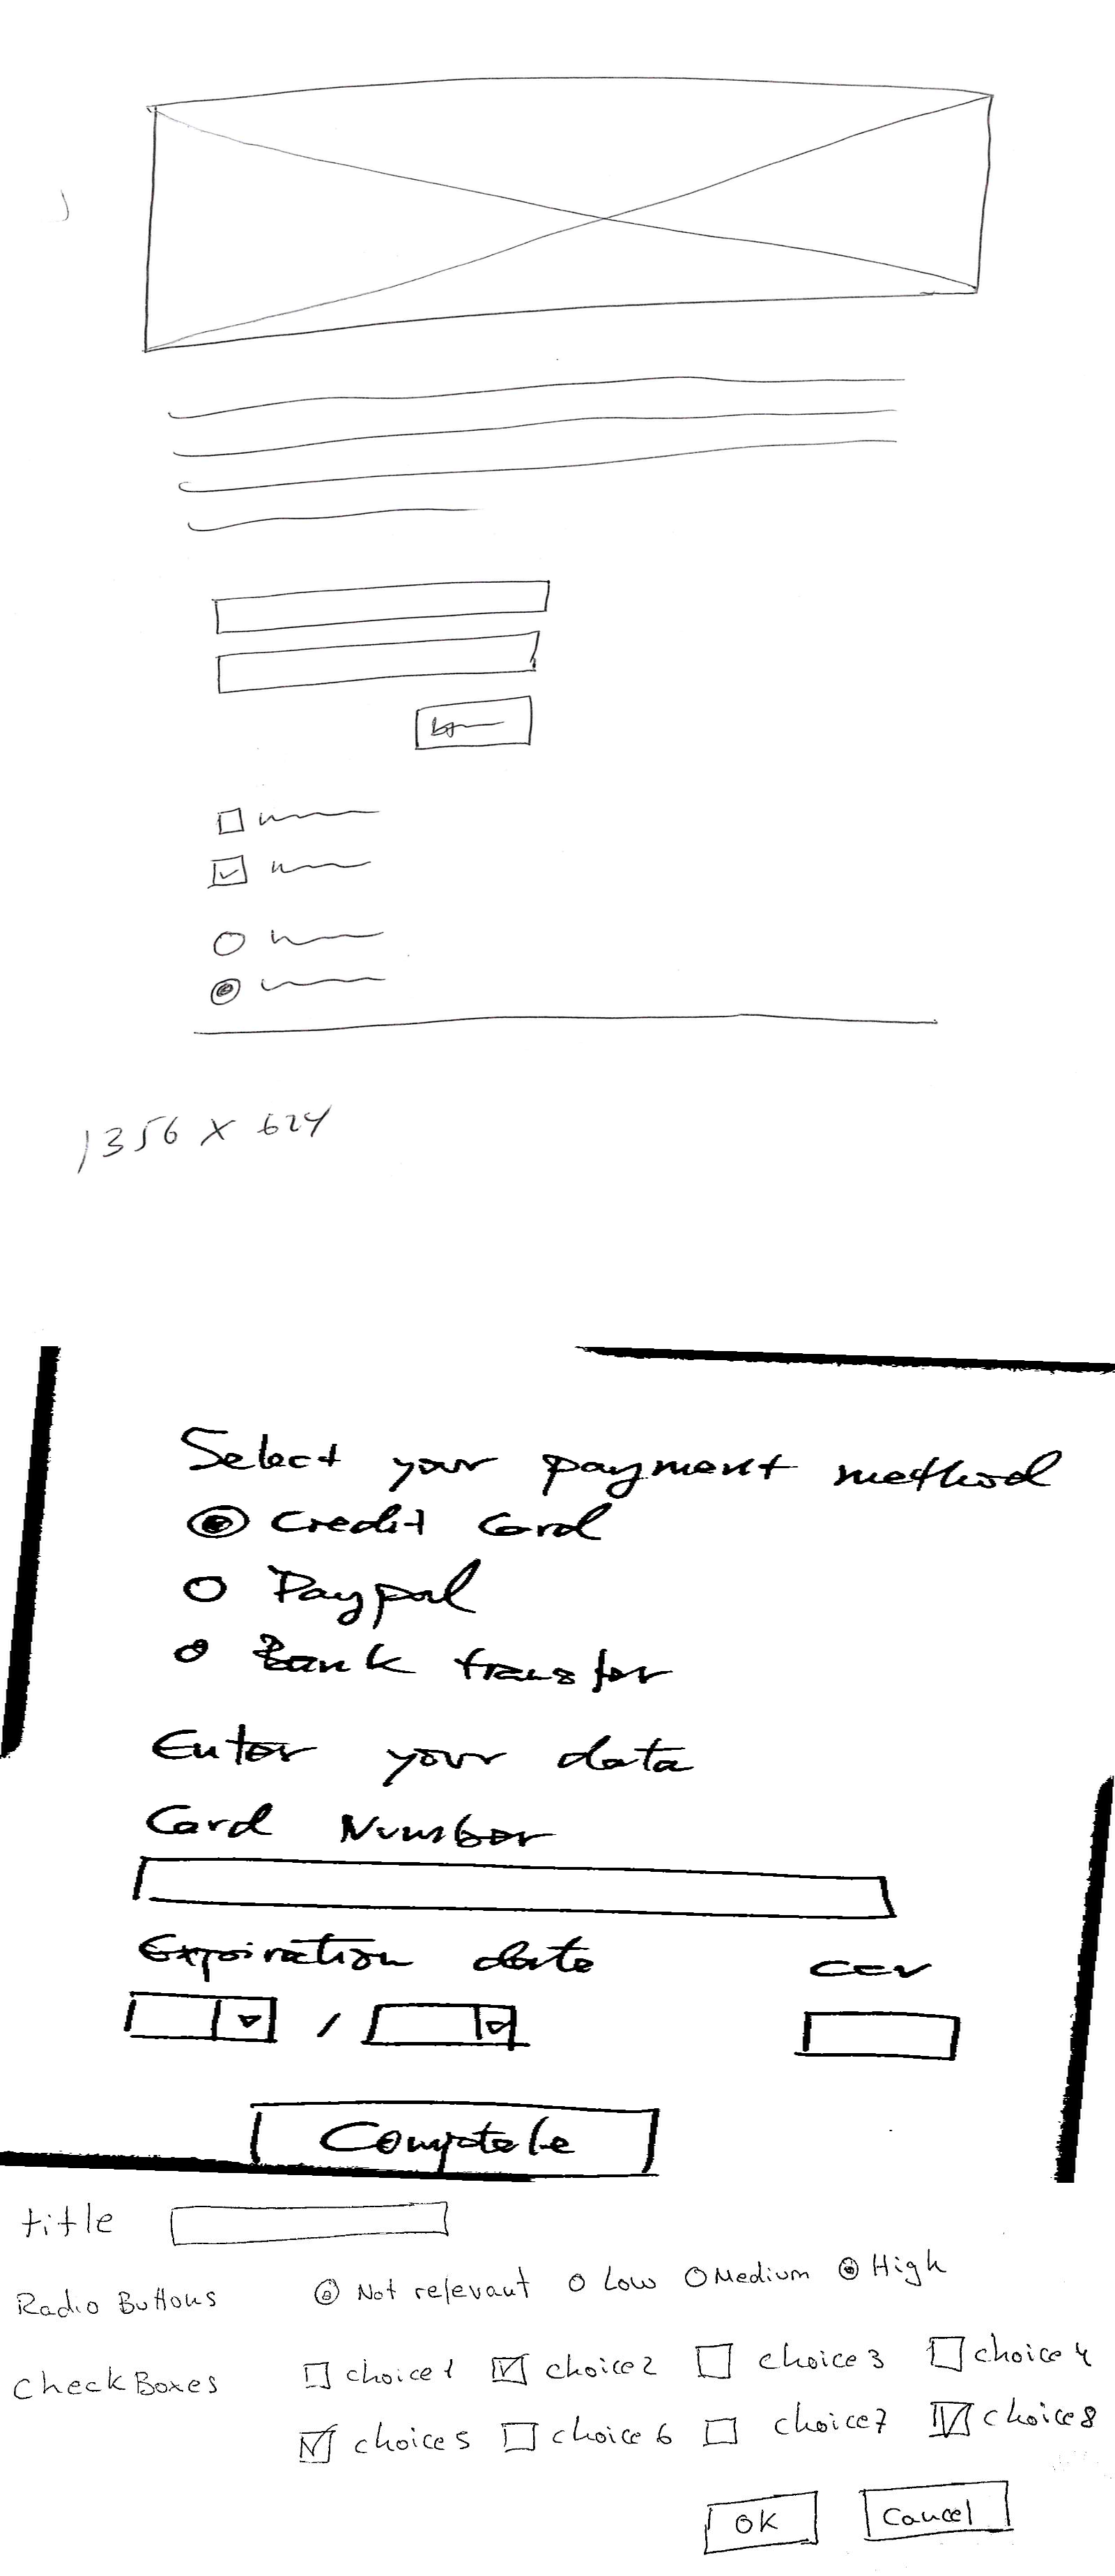 1356 X 624
Select your payment method
Credit Card
Paypal
Bank transfer
Enter your data
Card Number
Expiration date ccv
/
Complete
title
Radio Buttons Not relevant Low Medium High
CheckBoxes choice1 choice2 choice3 choice4
choice5 choice6 choice7 choice8
OK Cancel